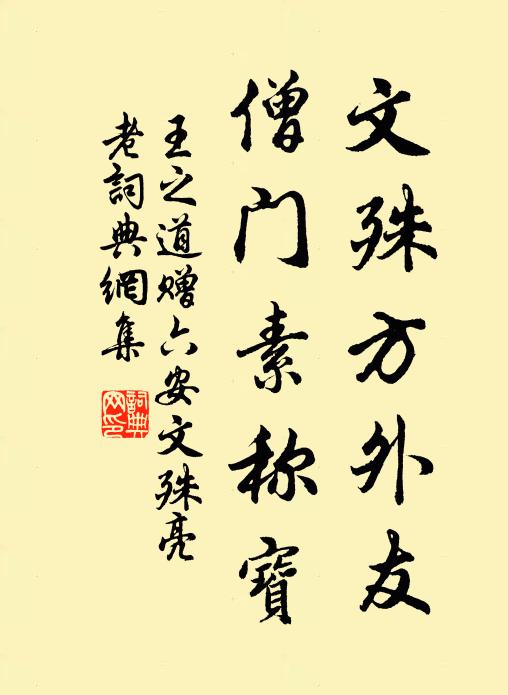 文殊方外友
僧门素称寶
王之道赠六安文殊亮
老詞典網集
詞典网印